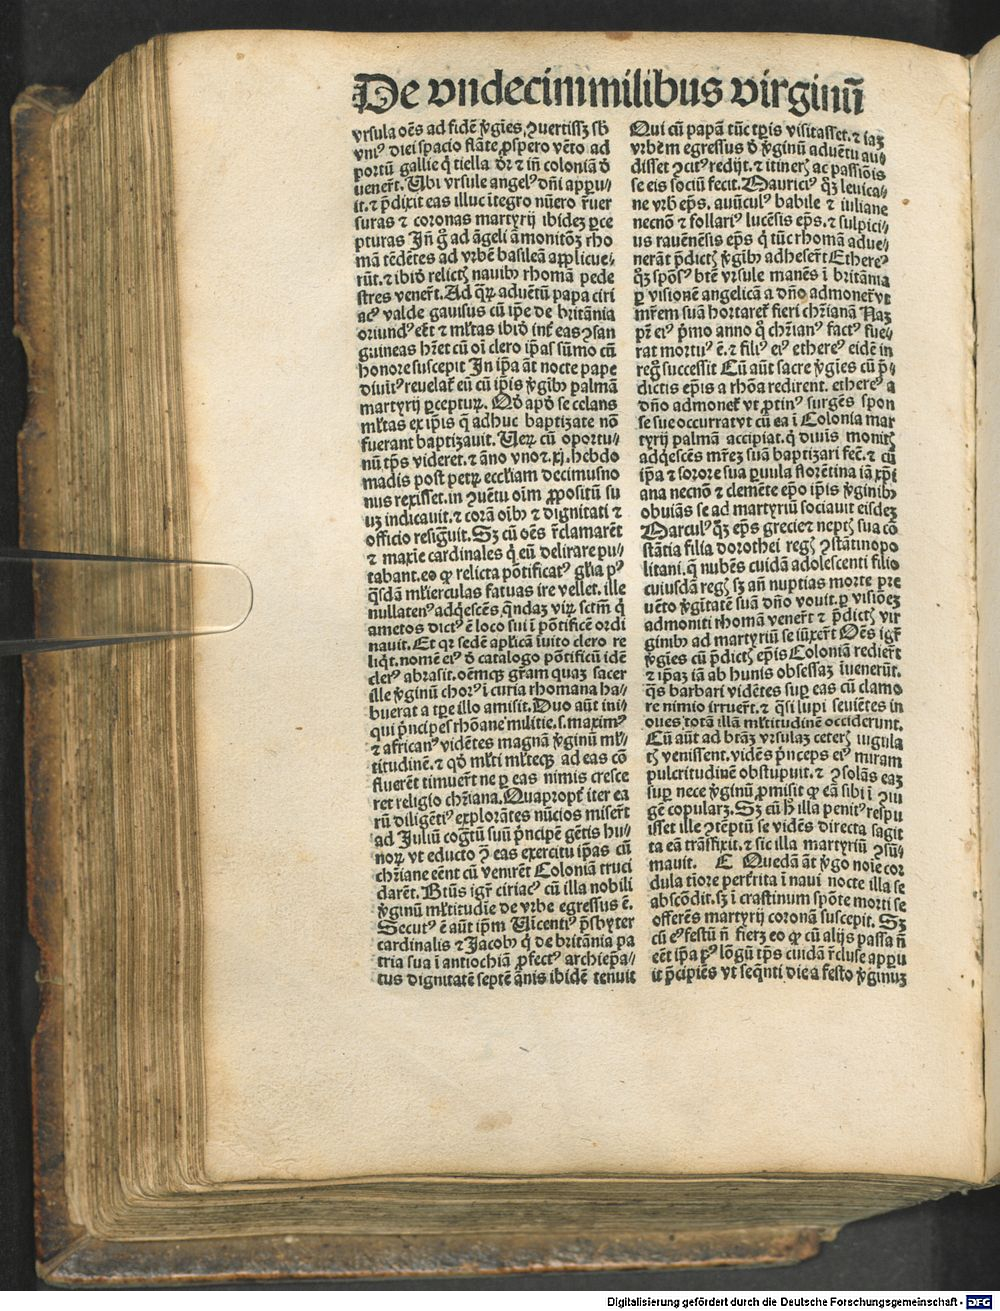 De vndecimmilibus virginū
vrsula oēs ad fidē ꝟgīes ꝯuertissꝫ sƀ
vniꝰ diei spacio flāte ꝓspero vēto ad
portū gallie q̄ tiella dr̄ ⁊ iñ coloniā d̄
uener̄t. Ubi vrsule angelꝰ dn̄i appu-
it. ⁊ p̄dixit eas illuc ītegro nūero r̄uer
suras ⁊ coronas martyrij ibidez ꝑce
pturas Iñ g̊ ad āgeli āmonitōꝫ rho
mā tēdētes ad vrbē basileā applicue-
rūt. ⁊ ibið relictꝭ nauibꝰ rhomam pede
stres vener̄t. Ad qꝝ aduētū papa ciri
acꝰ valde gauisus cū ip̄e de britānia
oriundꝰ eēt ⁊ ml̄tas ibið int̄ eas ꝯsan
guineas hr̄et cū oī clero ip̄as sūmo cū
honore suscepit In ip̄a āt nocte pape
diuīꝰ reuelat̄ eū cū ip̄is ꝟgībꝰ palmā
martyrij ꝑcepturꝝ. Qð apð se celans
ml̄tas ex ip̄is q̄ adhuc baptizate nō
fuerant baptizauit. Ueꝝ cū oportu-
nū tp̄s videret. ⁊ āno vno ⁊ .xj. hebdo
madis post petrꝝ eccl̄iam decimusno
nus rexisset. in ꝯuētu oīm ꝓpositū su
uꝫ indicauit. ⁊ corā oībꝰ ⁊ dignitati ⁊
officio resignuit. Sꝫ cū oēs r̄clamarēt
⁊ maxīe cardinales q̄ eū delirare pu-
tabant. eo ꝙ relicta pōtificatꝰ gl̄ia pꝰ
qͣsdā ml̄ierculas fatuas ire vellet. ille
nullatenꝰ adq̇escēs q̄ndaꝫ viꝝ sctm̄ q̇
ametos dictꝰ ē loco sui ī pōtificē ordi
nauit. Et qꝛ sedē aplicā īuito clero re
liq̇t. nomē eiꝰ d̄ catalogo pōtificū idē
clerꝰ abrasit. oēmqꝫ gr̄am quaꝫ sacer
ille ꝟginū chorꝰ ī curia rhomana ha-
buerat a tꝑe illo amisit. Duo aūt ini-
qui p̄ncipes rhōane militie. s. maximꝰ
⁊ africanꝰ vidētes magnā ꝟginū ml̄-
titudinē. ⁊ qð ml̄ti ml̄teqꝫ ad eas cō
fluerēt timuer̄t ne ꝑ eas nimis cresce
ret religio chr̄iana. Quapropt̄ iter ea
rū diligētiꝰ explorātes nūcios miser̄t
ad Juliū cogātū suū p̄ncipē gētis hu-
noꝝ vt educto ꝯ̄ eas exercitu ip̄as cū
chr̄iane eēnt cū venirēt Coloniā truci
darēt. Btūs igr̄ ciriacꝰ cū illa nobili
ꝟginū ml̄titudīe de vrbe egressus ē.
Secutꝰ ē aūt ip̄m Uīcentiꝰ p̄sbyter
cardinalis ⁊ Jacobꝰ q̇ de britānia pa
tria sua ī antiochiā ꝓfectꝰ archiep̄a-
tus dignitatē septē ānis ibidē tenuit
Qui cū papā tūc tꝑis visitasset. ⁊ iaꝫ
vrbē egressus d̄ ꝟginū aduētu au
disset ꝯcitꝰ redijt. ⁊ itinerꝭ ac passiōis
se eis sociū fecit. Mauriciꝰ qꝫ leuica-
ne vrb̄ ep̄s. auūculꝰ babile ⁊ iuliane
necnō ⁊ follariꝰ lucēsis ep̄s. ⁊ sulpici-
us rauēnēsis ep̄s q̇ tūc rhomā adue-
nerāt p̄dictꝭ ꝟgībꝰ adheser̄t Ethereꝰ
qꝫ spōsꝰ btē vrsule manēs ī britānia
ꝑ visionē angelicā a dn̄o admonet̄ vt
mr̄em suā hortaret̄ fieri chr̄ianā Naꝫ
pr̄ eiꝰ p̄mo anno q̊ chr̄ianꝰ factꝰ fue-
rat mortuꝰ ē. ⁊ filiꝰ eiꝰ ethereꝰ eidē in
regͦ successit Cū aūt sacre ꝟgīes cū p̄-
dictis ep̄is a rhōa redirent. ethereꝰ a
dn̄o admonet̄ vt ꝓtinꝰ surgēs spon
se sue occurrat vt cū ea ī Colonia mar
tyrij palmā accipiat. q̇ diuīs monitꝭ
adq̇escēs mr̄eꝫ suā baptizari fec̄. ⁊ cū
ip̄a ⁊ sorore sua ꝑuula florētina iā xp̄i
ana necnō ⁊ clemēte ep̄o ip̄is ꝟginibꝰ
obuiās se ad martyriū sociauit eisdeꝫ
Marculꝰ qꝫ ep̄s grecie ⁊ neptꝭ sua cō
stātia filia dorothei regꝭ ꝯstātinopo
litani. q̄ nubēs cuidā adolescenti filio
cuiusdā regꝭ sꝫ añ nuptias morte pre
uēto ꝟgītatē suā dn̄o vouit. ꝑ visiōeꝫ
admoniti rhomā vener̄t ⁊ p̄dictꝭ vir
ginibꝰ ad martyriū se iūxer̄t Oēs igr̄
ꝟgīes cū p̄dictꝭ ep̄is Coloniā redier̄t
⁊ ip̄aꝫ iā ab hunis obsessaꝫ īuenerūt.
qͣs barbari vidētes suꝑ eas cū clamo
re nimio irruer̄t. ⁊ qͣsi lupi seuiētes in
oues totā illā ml̄titudinē occiderunt.
Cū aūt ad btāꝫ vrsulaꝫ ceterꝭ iugula
tꝭ venissent. vidēs p̄nceps eiꝰ miram
pulcritudinē obstupuit. ⁊ ꝯsolās eaꝫ
suꝑ nece ꝟginū ꝓmisit ꝙ eā sibi ī ꝯiu
gē copularꝫ. Sꝫ cū h̄ illa penitꝰ respu
isset ille ꝯtēptū se vidēs directa sagit
ta eā trāsfixit. ⁊ sic illa martyriū ꝯsū-
mauit. C Quedā āt ꝟgo noīe cor
dula tīore perr̄ita ī naui nocte illa se
abscōdit. sꝫ ī crastinum spōte morti se
offerēs martyrij coronā suscepit. Sꝫ
cū eꝰ festū ñ fierꝫ eo ꝙ cū alijs passa ñ
eēt ip̄a pꝰ lōgū tp̄s cuidā r̄cluse appu
it p̄cipiēs vt seq̄nti die a festo ꝟginuꝫ
Digitalisierung gefördert durch die Deutsche Forschungsgemeinschaft - DFG